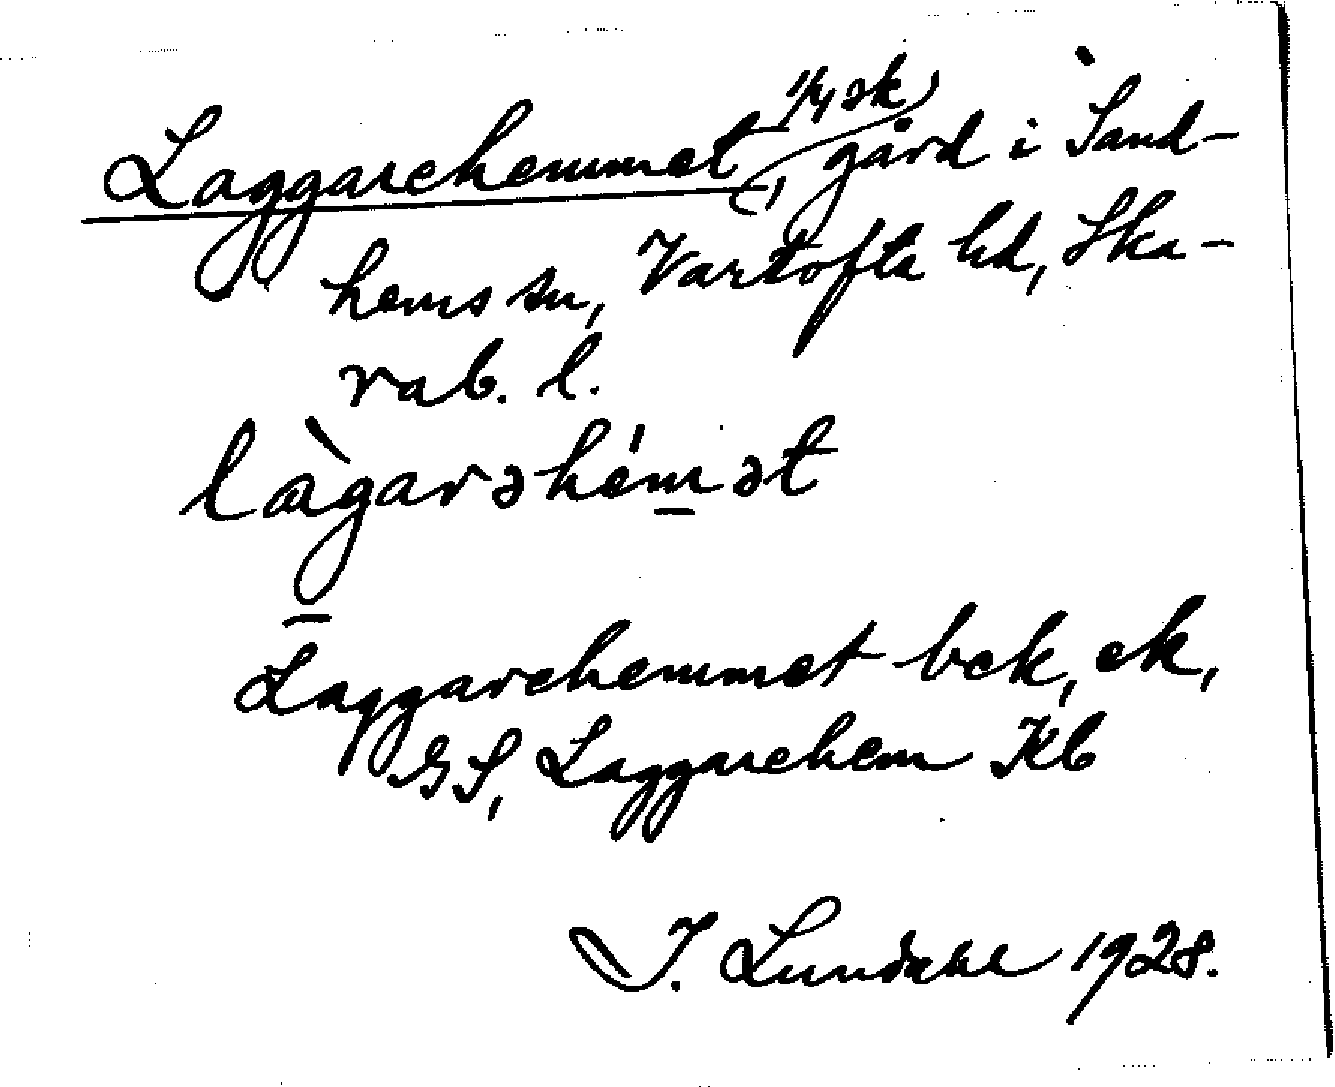 Laggarehemmet, 1/4 sk, gård i Sand-
hems sn, Vartofta hd, Ska-
rab. l.
làgarəhém̱ət
Laggarehemmet bek, ek,
GS, Laggarehem Kb
I. Lundahl 1928.